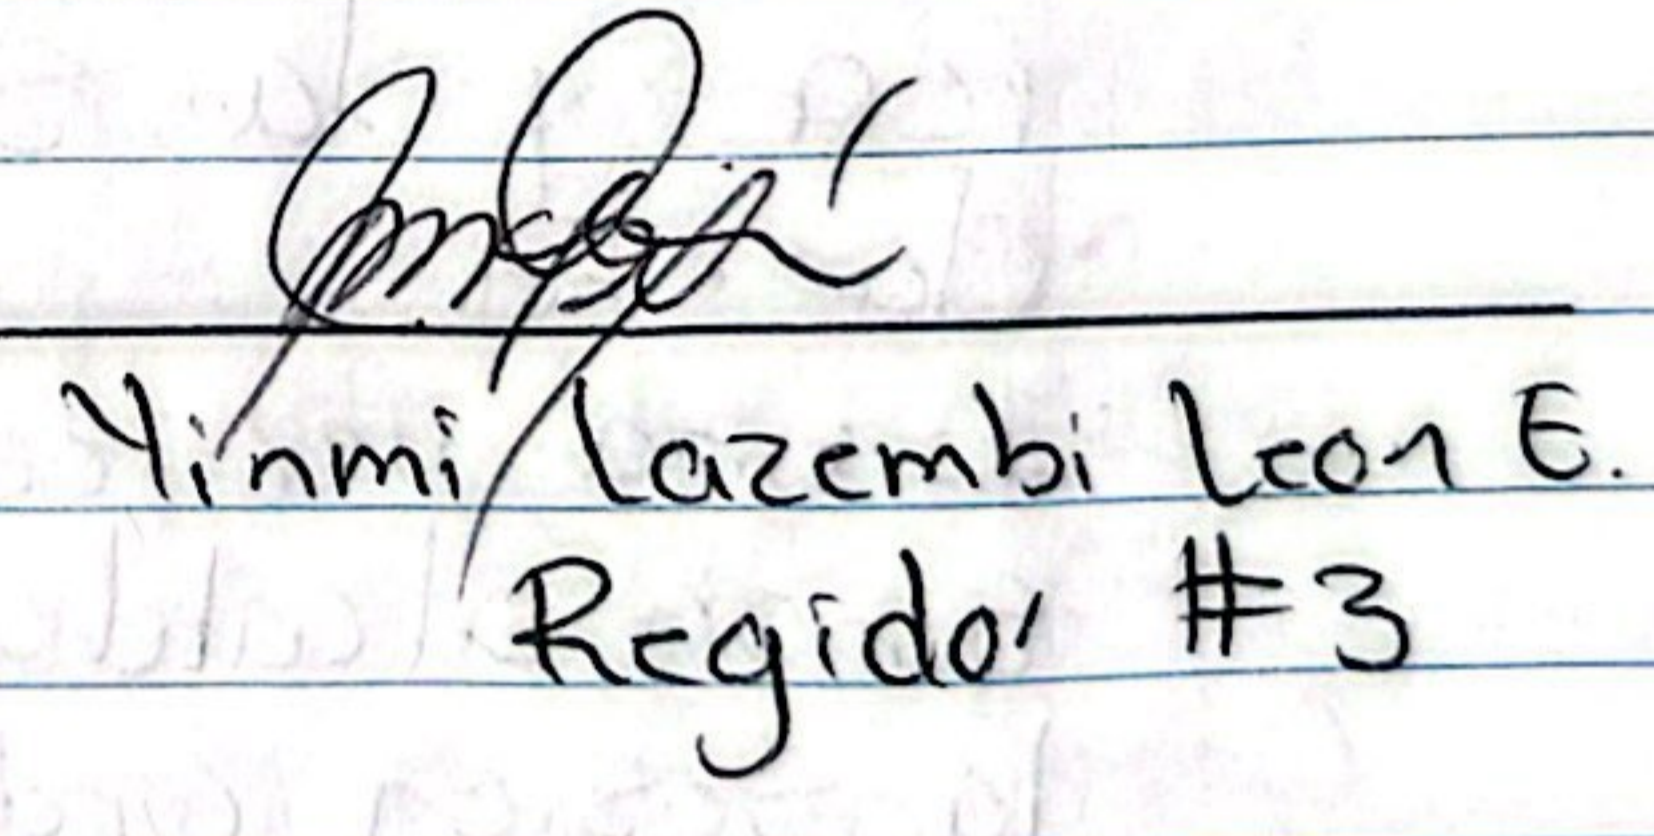 Yinmi Lazembi Leon E.
Regidor #3